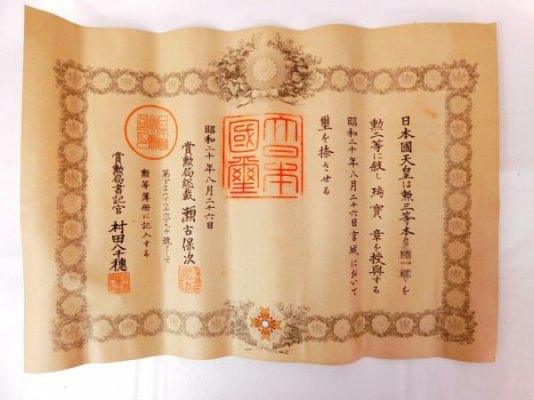 日本國天皇は勲三等本
を
勲二等に敍し瑞寶章を授與する
昭和二十年八月二十六日宮城において
璽を捺させる
大日本
國璽
昭和二十年八月二十六日
賞勲局総裁 瀬古保次
勲等簿冊に記入する
賞勲局書記官 村田八千穂